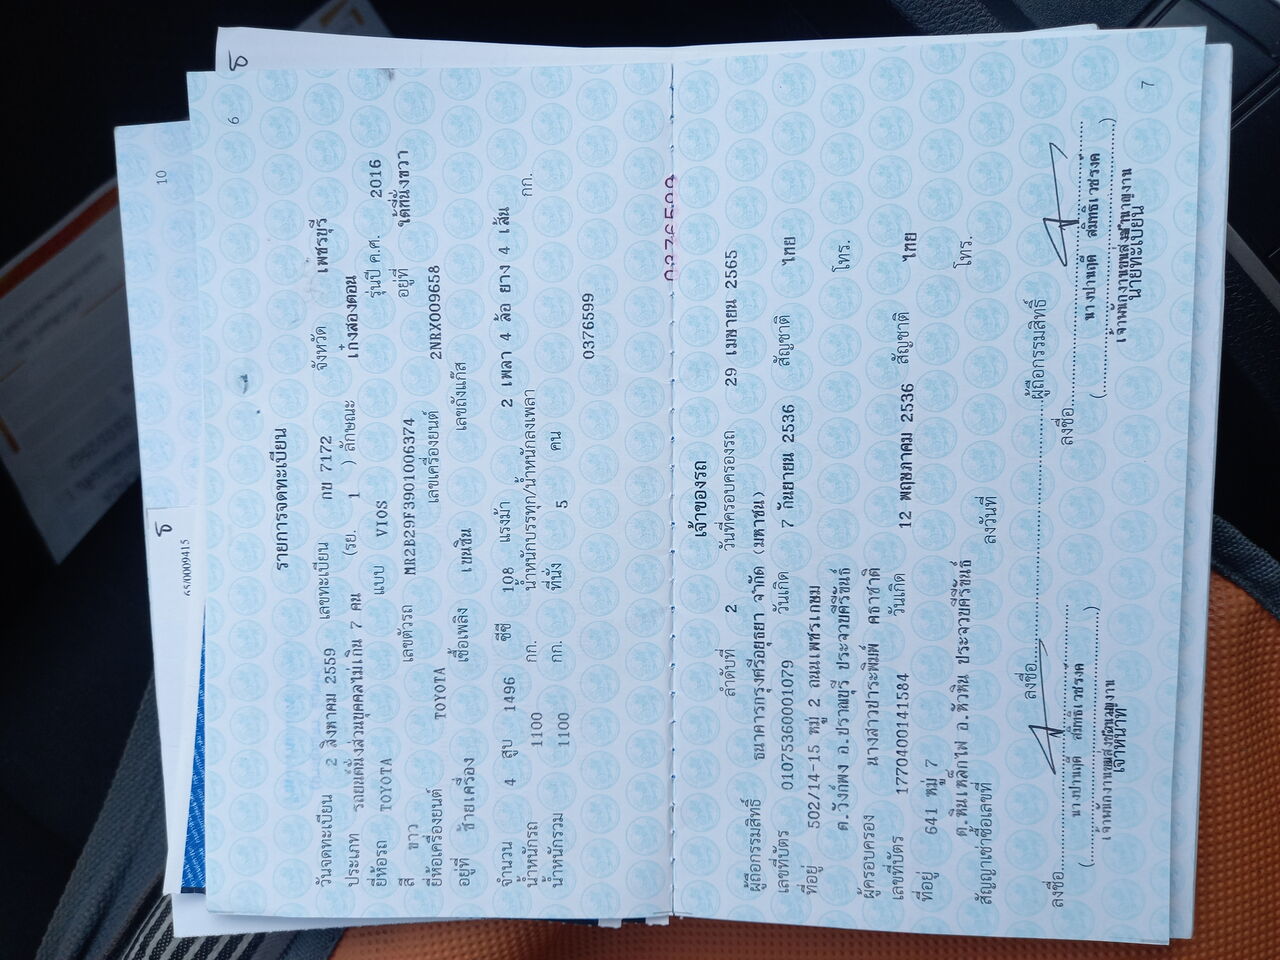 6
รายการจดทะเบียน
วันจดทะเบียน 2 สิงหาคม 2559 เลขทะเบียน กข 7172 จังหวัด เพชรบุรี
ประเภท รถยนต์นั่งส่วนบุคคลไม่เกิน 7 คน (รย. 1 ) ลักษณะ เก๋งสองตอน
ยี่ห้อรถ TOYOTA แบบ VIOS รุ่นปี ค.ศ. 2016
สี ขาว เลขตัวรถ MR2B29F3901006374 อยู่ที่ ใต้ที่นั่งขวา
ยี่ห้อเครื่องยนต์ TOYOTA เลขเครื่องยนต์ 2NRX009658
อยู่ที่ ซ้ายเครื่อง เชื้อเพลิง เบนซิน เลขถังแก๊ส
จำนวน 4 สูบ 1496 ซีซี 108 แรงม้า 2 เพลา 4 ล้อ ยาง 4 เส้น
น้ำหนักรถ 1100 กก. น้ำหนักบรรทุก/น้ำหนักลงเพลา กก.
น้ำหนักรวม 1100 กก. ที่นั่ง 5 คน
0376599
0376599
เจ้าของรถ
ลำดับที่ 2 วันที่ครอบครองรถ 29 เมษายน 2565
ผู้ถือกรรมสิทธิ์ ธนาคารกรุงศรีอยุธยา จำกัด (มหาชน)
เลขที่บัตร 01075360001079 วันเกิด 7 กันยายน 2536 สัญชาติ ไทย
ที่อยู่ 502/14-15 หมู่ 2 ถนนเพชรเกษม
ต.วังก์พง อ.ปราณบุรี ประจวบคีรีขันธ์ โทร.
ผู้ครอบครอง นางสาวปาระพิมพ์ คชาชาติ
เลขที่บัตร 1770400141584 วันเกิด 12 พฤษภาคม 2536 สัญชาติ ไทย
ที่อยู่ 641 หมู่ 7
ต.หินเหล็กไฟ อ.หัวหิน ประจวบคีรีขันธ์ โทร.
สัญญาเช่าซื้อเลขที่ ลงวันที่
ลงชื่อ ผู้ถือกรรมสิทธิ์
ลงชื่อ ลงชื่อ
เจ้าหน้าที่ นายทะเบียน
7
10
65/0009415